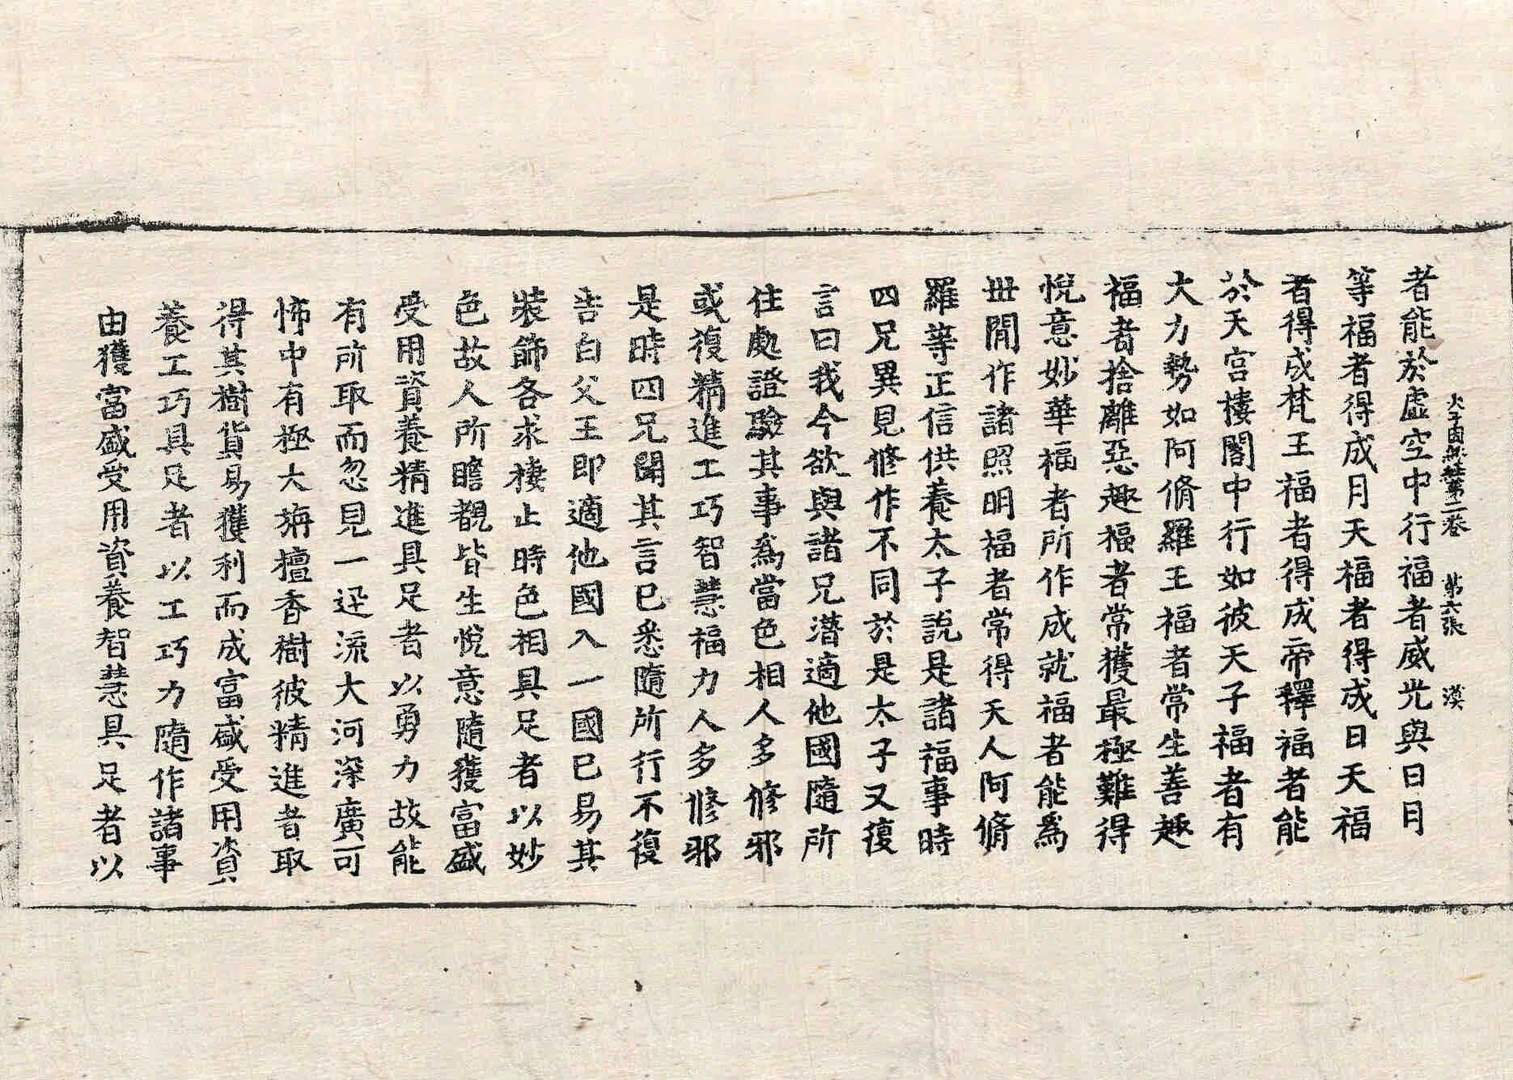 太子因縁経第二卷 第六張 漢
者能於虛空中行福者威光與日月
等福者得成月天福者得成日天福
者得成梵王福者得成帝釋福者能
於天宮樓閣中行如彼天子福者有
大力勢如阿脩羅王福者常生善趣
福者捨離惡趣福者常獲最極難得
悅意妙華福者所作成就福者能爲
世間作諸照明福者常得天人阿脩
羅等正信供養太子說是諸福事時
四兄異見修作不同於是太子又復
言曰我今欲與諸兄潛適他國隨所
住處證驗其事爲當色相人多修邪
或復精進工巧智慧福力人多修邪
是時四兄聞其言已悉隨所行不復
告白父王即適他國入一國已易其
裝飾各求棲止時色相具足者以妙
色故人所瞻覩皆生悅意隨獲富盛
受用資養精進具足者以勇力故能
有所取而忽見一迅流大河深廣可
怖中有極大栴檀香樹彼精進者取
得其樹貨易獲利而成富盛受用資
養工巧具足者以工巧力隨作諸事
由獲富盛受用資養智慧具足者以